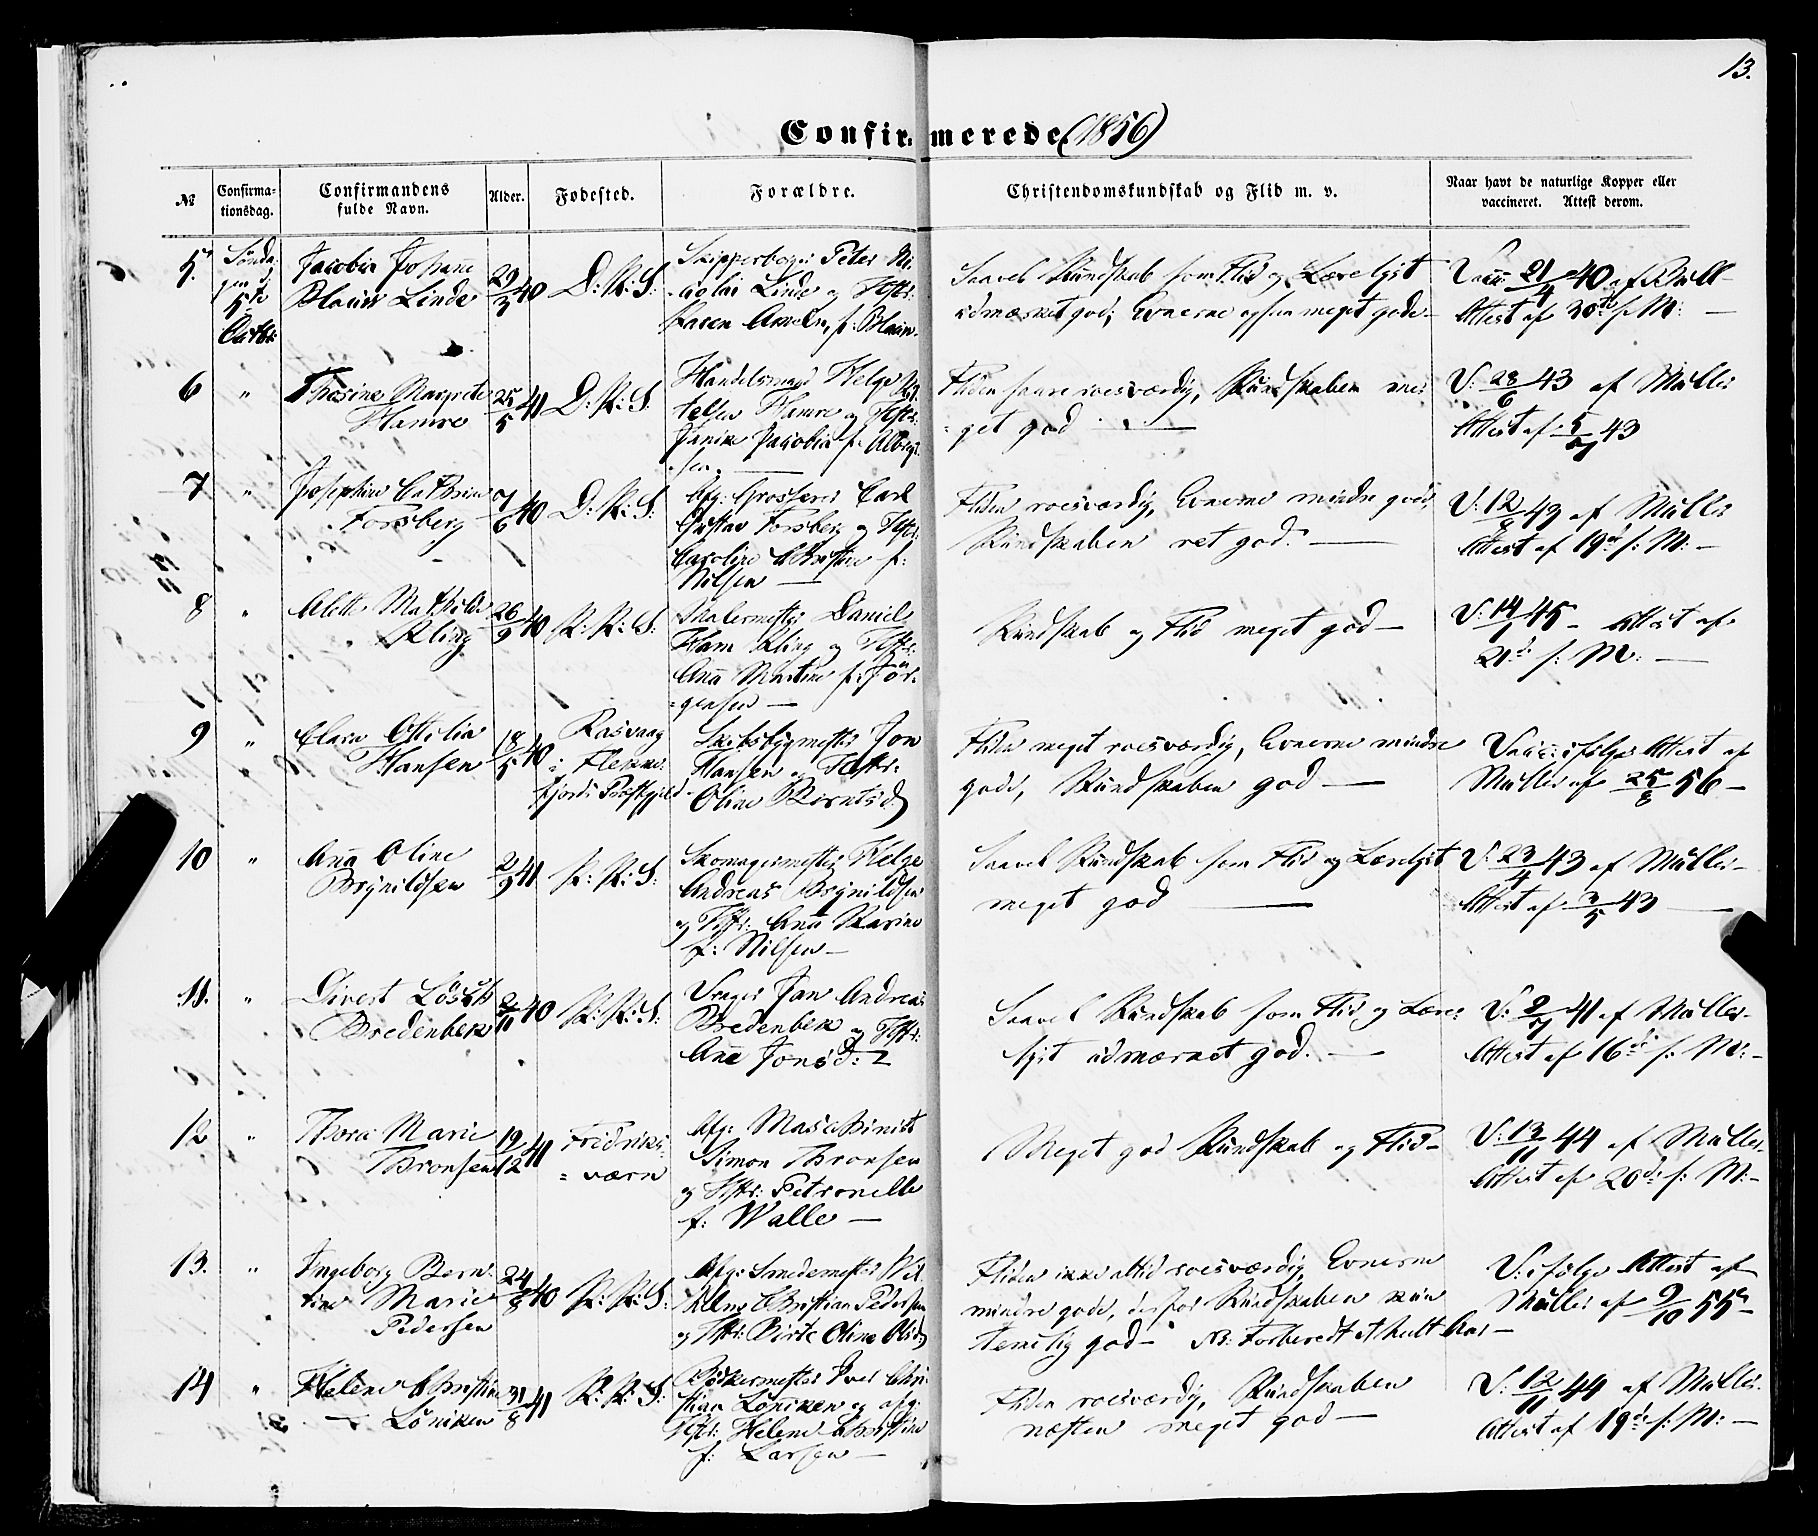 13.
Confirmerede (1856)
№ Confirma-tionsdag. Confirmandens fulde Navn. Alder. Fødested. Forældre. Christendomskundskab og Flid m. v. Naar havt de naturlige Kopper eller vaccineret. Attest derom.
5. Sønda-
Jacobia Johane
Linde
29/3 40
D: K: S:
Skipperborger Peter Ni-
colai Linde og Hstr:
Karen f:
Saavel Kundskab som Flid og Lærelyst
udmærket god; Evnerne ogsaa meget gode —
Vacc: 21/4 40 af Büll —
Attest af 30te s. M: —
6 "
Thrine Margrete
Hamre
25/5 41
D: K: S:
Handelsmand Helge
Hamre og Hstr:
Jacobia f: Albregt-
sen —
Fliden saare roesværdig, Kundskaben me-
get god —
V: 28/6 43 af Müller
Attest af 5/7 43
7 "
Josephine Cathrine
Forsberg
7/6 40
D: K: S:
Afg: Grosserer Carl
Gustav Forsberg og Hstr:
Caroline Christine f:
Nilsen —
Fliden roesværdig, Evnerne mindre gode,
Kundskaben ret god. —
V: 12/8 43 af Müller
Attest af 19de s: M: —
8 "
Alette Mathilde
Kling
26/9 40
K: K: S:
Malermester Daniel
Ham Kling og Hstr:
Ana Martine f: Jør-
gensen —
Kundskab og Flid meget god —
V: 14/7 45 — Attest af
21de s: M: —
9 "
Clara Ottilia
Hansen
18/5 40
Rasvaag
i Flekke-
fjords Præstgjeld
Skibsbygmester Jon
Hansen og Hstr:
Oline Berntsd
Fliden meget roesværdig, Evnerne mindre
gode, Kundskaben god —
Vacc: ifølge Attest af
Müller af 25/8 56 —
10 "
Ana Oline
Brynildsen
2/9 41
K: K: S:
Skomagermester Helge
Andreas Brynildsen
og Hstr: Ana Karine
f: Nilsen —
Saavel Kundskab som Flid og Lærelyst
meget god —
V: 23/4 43 af Müller —
Attest af 3/5 43 —
11. "
Divert
Bredenbek
2/11 40
K: K: S:
Drager Jan Andreas
Bredenbek og Hstr:
Ane Jonsd: —
Saavel Kundskab som Flid og Lære-
lyst udmærket god. —
V: 9/7 41 af Müller —
Attest af 16de s: M: —
12 "
Thora Marie
Thronsen
19/12 41
Fridriks-
værn
Afg: Maschinist
Simon Thronsen
og Hstr: Petronelle
f: Walle —
Meget god Kundskab og Flid —
V: 13/11 44 af Müller —
Attest af 20de s: M: —
13. "
Ingeborg Bern-
tine Marie
Pedersen
24/8 40
K: K: S:
Afg: Smedemester Wil-
helm Christian Pedersen
og Hstr: Birte Oline Olsd
Fliden ikke altid roesværdig, Evnerne
mindre gode, derfor Kundskaben kun
temelig god —
V: ifølge Attest af
Müller af 9/10 55 —
14 "
Helene Christine
Löniken
31/8 41
K: K: S:
Bødkermester Iver Chri-
stian Löniken og afg:
Hstr: Helene Christine
f: Larsen —
Fliden roesværdig, Kundskaben
næsten meget god —
V: 12/11 44 af Müller —
Attest af 19de s: M: —